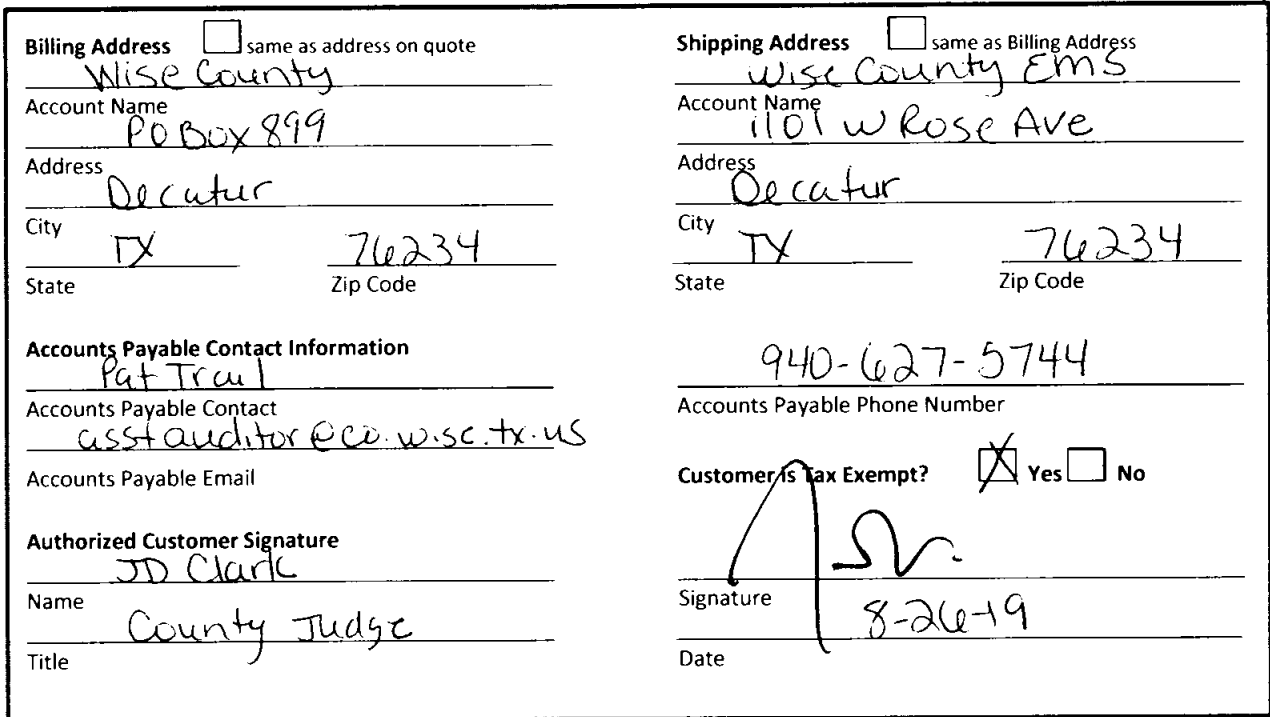 Billing Address same as address on quote
Wise County
Account Name
PO Box 899
Address
Decatur
City
TX 76234
State Zip Code
Accounts Payable Contact Information
Pat Trail
Accounts Payable Contact
asstauditor@co.wise.tx.us
Accounts Payable Email
Authorized Customer Signature
JD Clark
Name
County Judge
Title
Shipping Address same as Billing Address
Wise County EMS
Account Name
1101 W Rose Ave
Address
Decatur
City
TX 76234
State Zip Code
940-627-5744
Accounts Payable Phone Number
Customer is Tax Exempt? X Yes No
Signature
8-26-19
Date